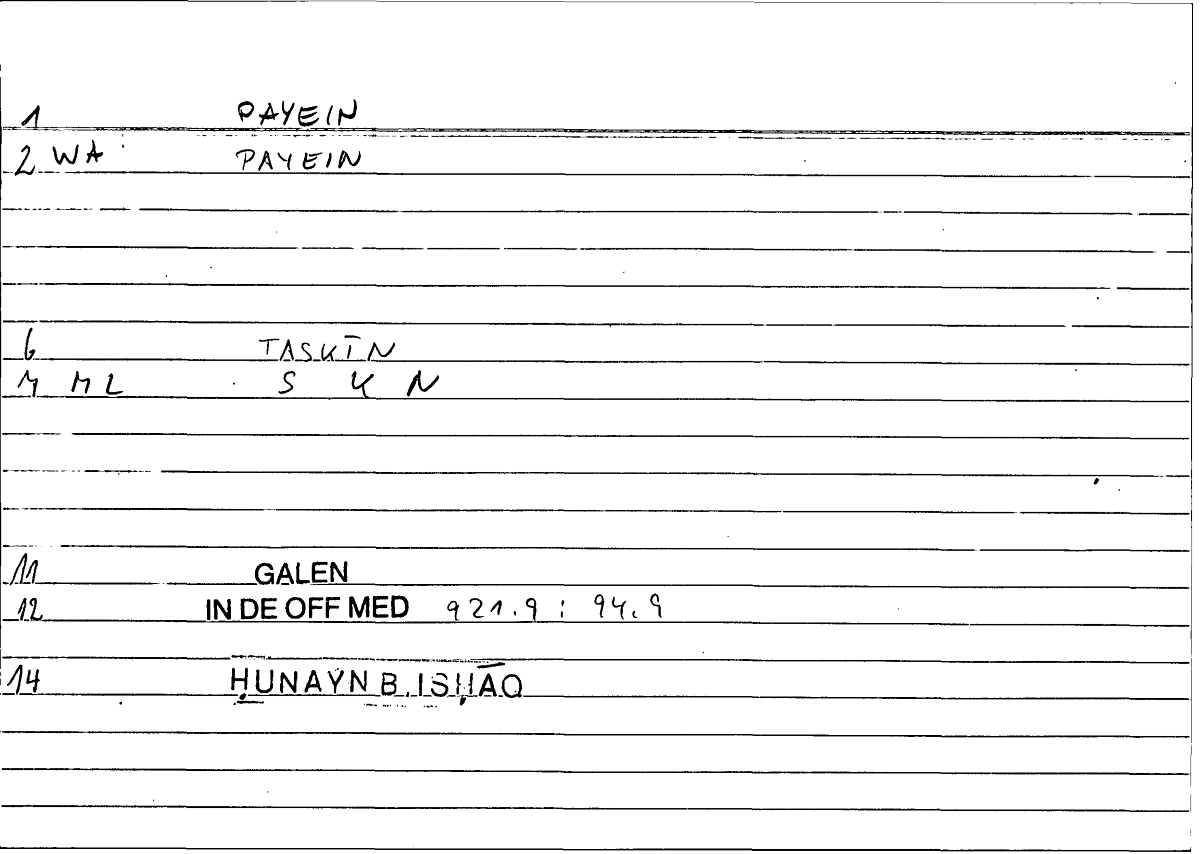 1 PAYEIN
2 WA PAYEIN
6 TASKĪN
M ML S K N
11 GALEN
12 IN DE OFF MED 921.9 : 94.9
14 ḤUNAYN B. ISḤĀQ